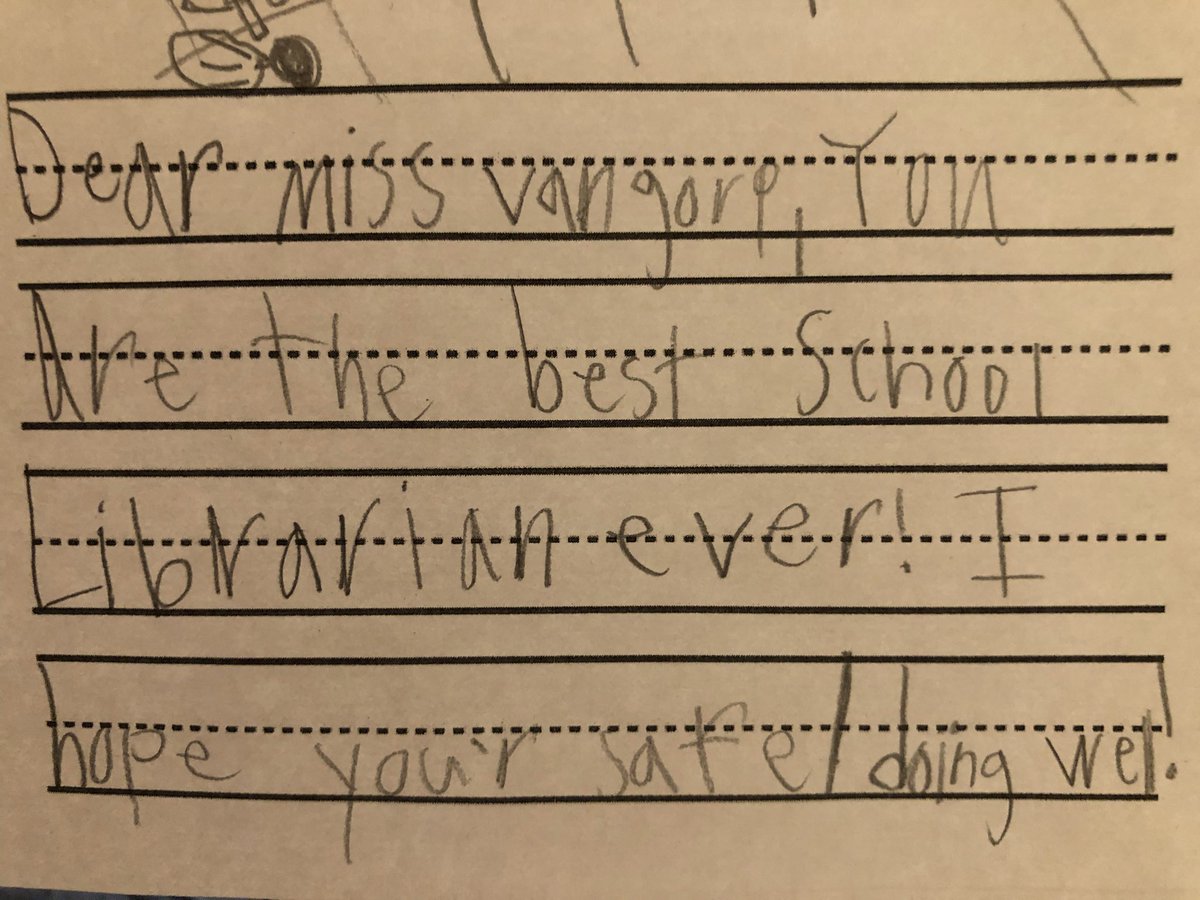 Dear miss vangorp, You
Are the best School
Librarian ever! I
hope you'r safe/doing wel!